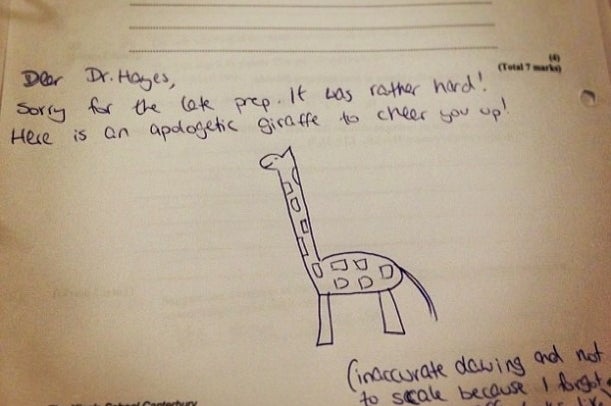 (4)
(Total 7 marks)
Dear Dr. Hayes,
Sorry for the late prep. It was rather hard!
Here is an apologetic giraffe to cheer you up!
(inaccurate dawing and not
to scale because I forgot
School Canterbury